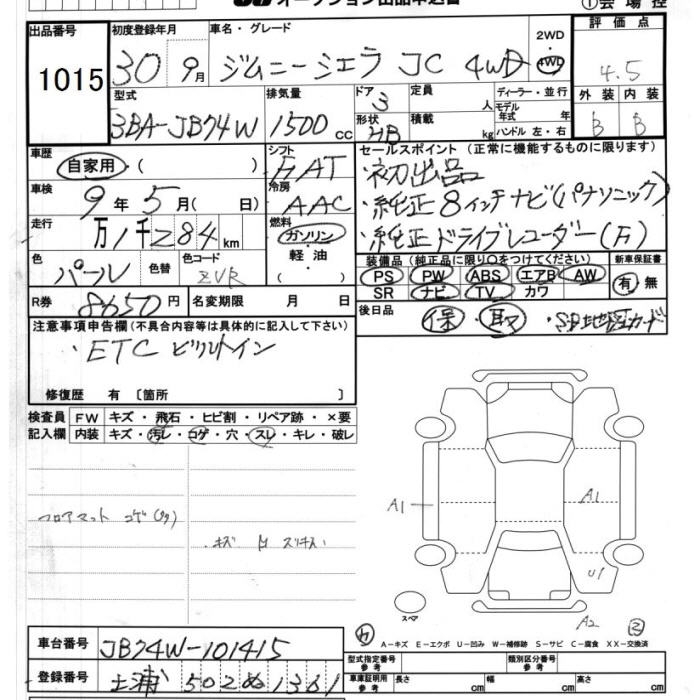 オークション出品申込書
①会場控
出品番号 初度登録年月 車名・グレード 2WD 評価点
1015 30 9月 ジムニーシエラ JC 4WD 4WD 4.5
型式 排気量 ドア 3 定員 人 ディーラー・並行 外装 内装
3BA-JB74W 1500cc 形状 HB 積載 kg モデル年式 年 ハンドル 左・右 B B
車歴 シフト セールスポイント (正常に機能するものに限ります)
自家用・( ) FAT ・初出品
車検 冷房 ・純正8インチナビ(パナソニック)
9年5月( 日) AAC ・純正ドライブレコーダー(F)
走行 燃料
万1千284km ガソリン 装備品 (純正品に限り○をつけてください) 新車保証書
色 色替 色コード 軽・油 PS PW ABS エアB AW 有・無
パール ZVR ( ) SR ナビ TV カワ
R券 8650円 名変期限 月 日 後日品 保・取・SD地図カード
注意事項申告欄 (不具合内容等は具体的に記入して下さい)
・ETC ビルトイン
修復歴 有 〔箇所 〕
検査員 FW キズ・飛石・ヒビ割・リペア跡・×要
記入欄 内装 キズ・汚レ・コゲ・穴・スレ・キレ・破レ
フロアマット コゲ
・キズ
A1 A1
U1
スペア A2
A-キズ E-エクボ U-凹み W-補修跡 S-サビ C-腐食 XX-交換済
車台番号 JB74W-101415 型式指定番号 参考 類別区分番号 参考
登録番号 土浦 502 ぬ 1361 車庫証明用 参考 長さ cm 幅 cm 高さ cm